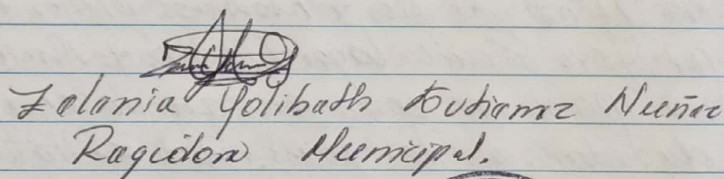 Zelania Yolibath Gutiarrez Nuñez
Ragidora Municipal.